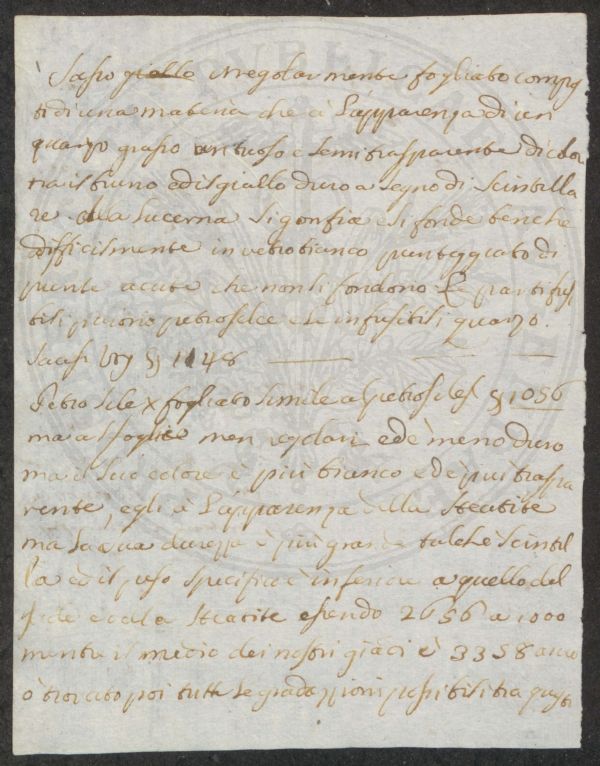 Sasso giallo irregolarmente fogliato compos
to di una materia che à l'apparenza di un
quarzo grasso untuoso e semitrasparente di color
tra il bruno ed il giallo duro a segno di scintilla
re alla lucerna si gonfia e si fonde benche
difficilmente in vetro bianco punteggiato di
punte acute che non si fondono Le parti fusi
bili paiono petroselce e le infusibili quarzo.
Sauss Voy § 1148
Petroselex fogliato simile al petroselex § 1056
ma a i foglie men regolari ed è meno duro
ma il suo colore è più bianco ed è più traspa
rente, egli à l'apparenza della steatite
ma la sua durezza è più grande talche scintil
la ed il peso specifico è inferiore a quello del
e dela steatite essendo 2656 a 1000
mentre il medio dei nostri giadi è 3358 anno
ò trovato poi tutte le gradazzioni possibili tra questi